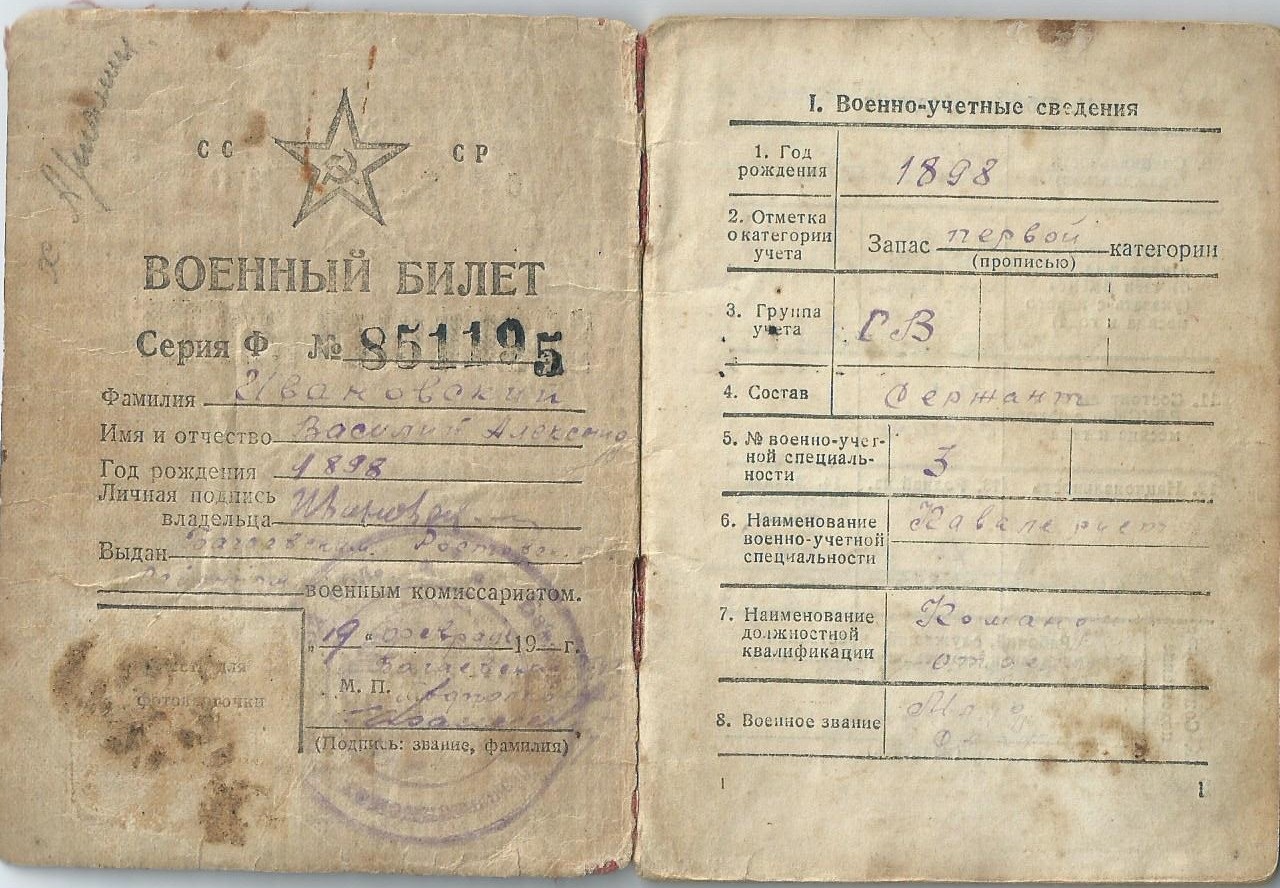 СС СР
ВОЕННЫЙ БИЛЕТ
Серия Ф № 851195
Фамилия Ивановский
Имя и отчество Василий Александ
Год рождения 1898
Личная подпись
владельца
Выдан Багаевским Ростовск.
военным комиссариатом.
"19" февраля 19 г.
М. П.
(Подпись: звание, фамилия)
I. Военно-учетные сведения
1. Год
рождения 1898
2. Отметка
о категории
учета Запас первой категории
(прописью)
3. Группа
учета
4. Состав Сержант
5. № военно-учет-
ной специаль-
ности 3
6. Наименование
военно-учетной
специальности Кавалерист
7. Наименование
должностной
квалификации Команд
отделен
8. Военное звание
1 1